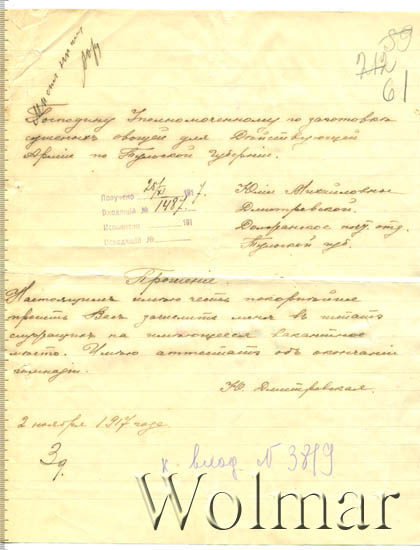 89
712
61
Господину Уполномоченному по заготовкѣ
сушеныхъ овощей для Дѣйствующей
Арміи по Тульской Губерніи.
Получено 28/XI 1917.
Входящій № 1487
Исполнено 191
Исходящій №
Юліи Михайловны
Дмитровской.
почт. отд.
Тульской губ.
Прошеніе.
Настоящимъ имѣю честь покорнѣйше
просить Васъ зачислить меня въ штатъ
служащихъ на имѣющееся вакантное
мѣсто. Имѣю аттестатъ объ окончаніи
гимназіи.
Ю. Дмитровская.
2 ноября 1917 года.
к. влад. N 3819
Wolmar